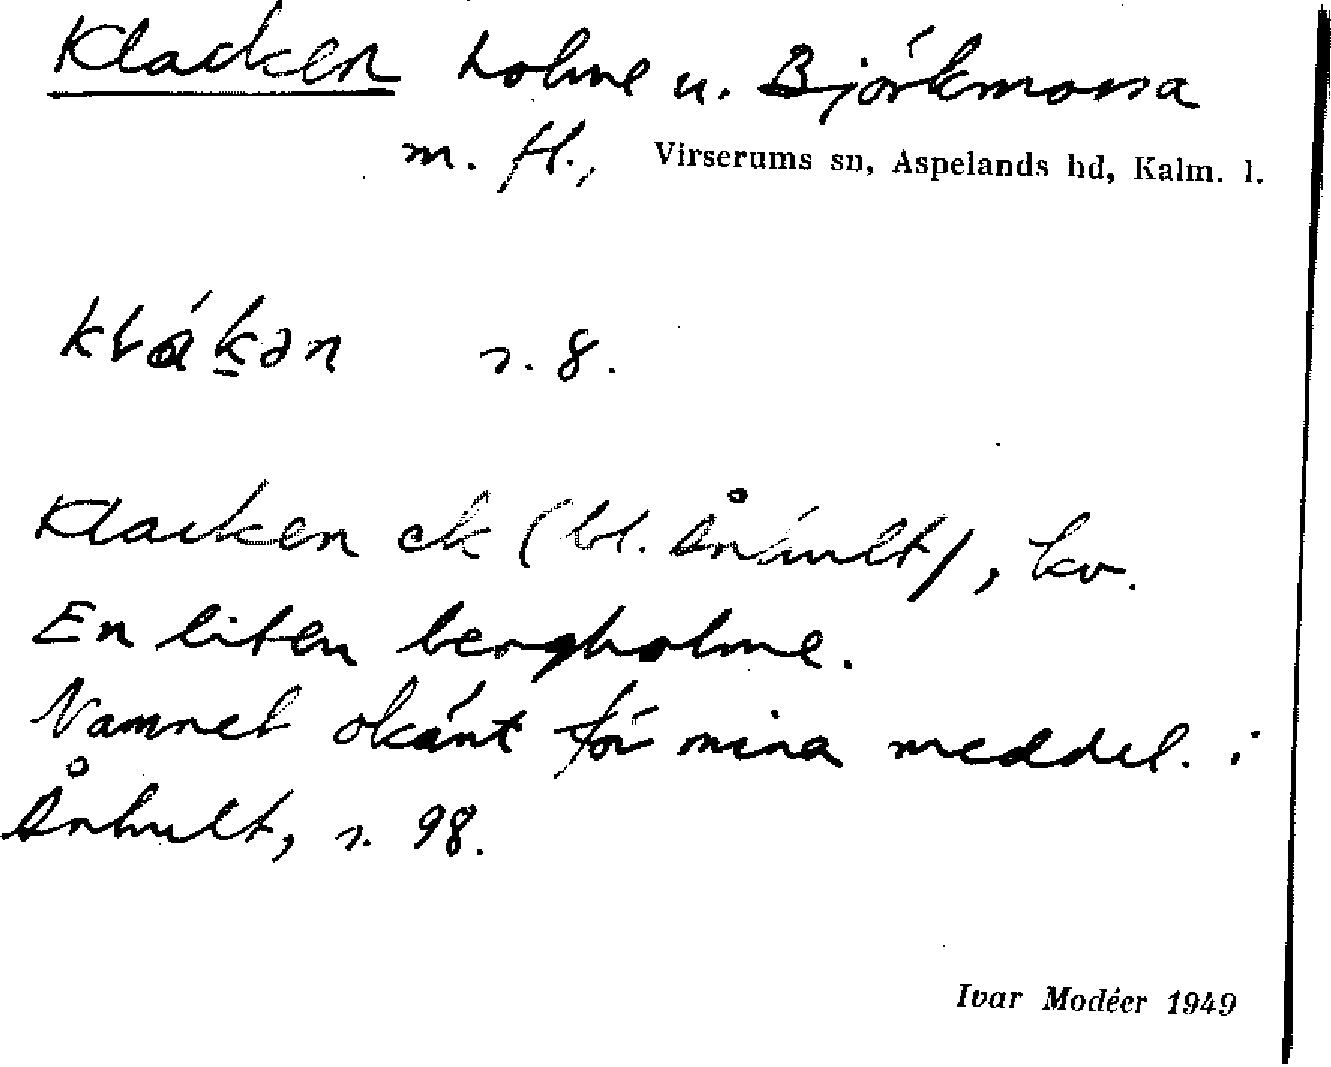 Klacken holme u. Björkmossa
m. fl., Virserums sn, Aspelands hd, Kalm. l.
s. 8.
Klacken ek (bl. Ånhult), kv.
En liten bergholme.
Namnet okänt för mina meddel. i
Ånhult, s. 98.
Ivar Modéer 1949